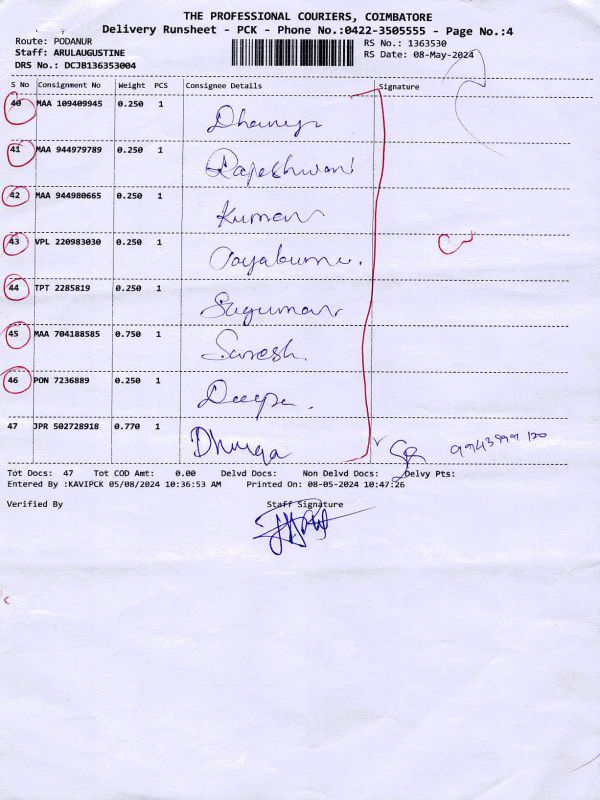 THE PROFESSIONAL COURIERS, COIMBATORE
Delivery Runsheet - PCK - Phone No.:0422-3505555 - Page No.:4
Route: PODANUR
RS No.: 1363530
Staff: ARULAUGUSTINE
RS Date: 08-May-2024
DRS No.: DCJB136353004
S No Consignment No Weight PCS Consignee Details Signature
40 MAA 109409945 0.250 1
41 MAA 944979789 0.250 1 Rajeshwari
42 MAA 944980665 0.250 1 Kumar
43 VPL 220983030 0.250 1
44 TPT 2285819 0.250 1 Sugumar
45 MAA 704188585 0.750 1 Suresh.
46 PON 7236889 0.250 1 Deepa.
47 JPR 502728918 0.770 1
Tot Docs: 47 Tot COD Amt: 0.00 Delvd Docs: Non Delvd Docs: Delvy Pts:
Entered By :KAVIPCK 05/08/2024 10:36:53 AM Printed On: 08-05-2024 10:47:26
Verified By Staff Signature